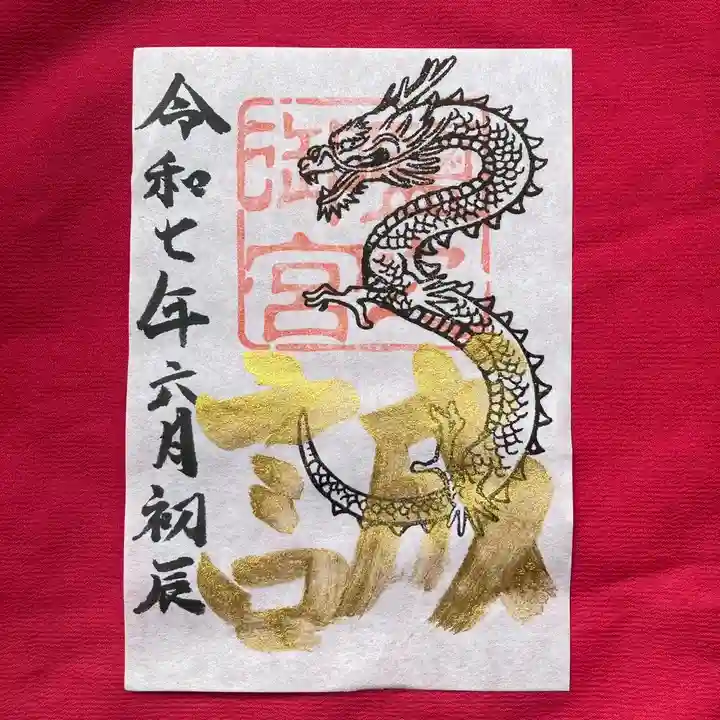 御宮
誠
令和七年六月初辰